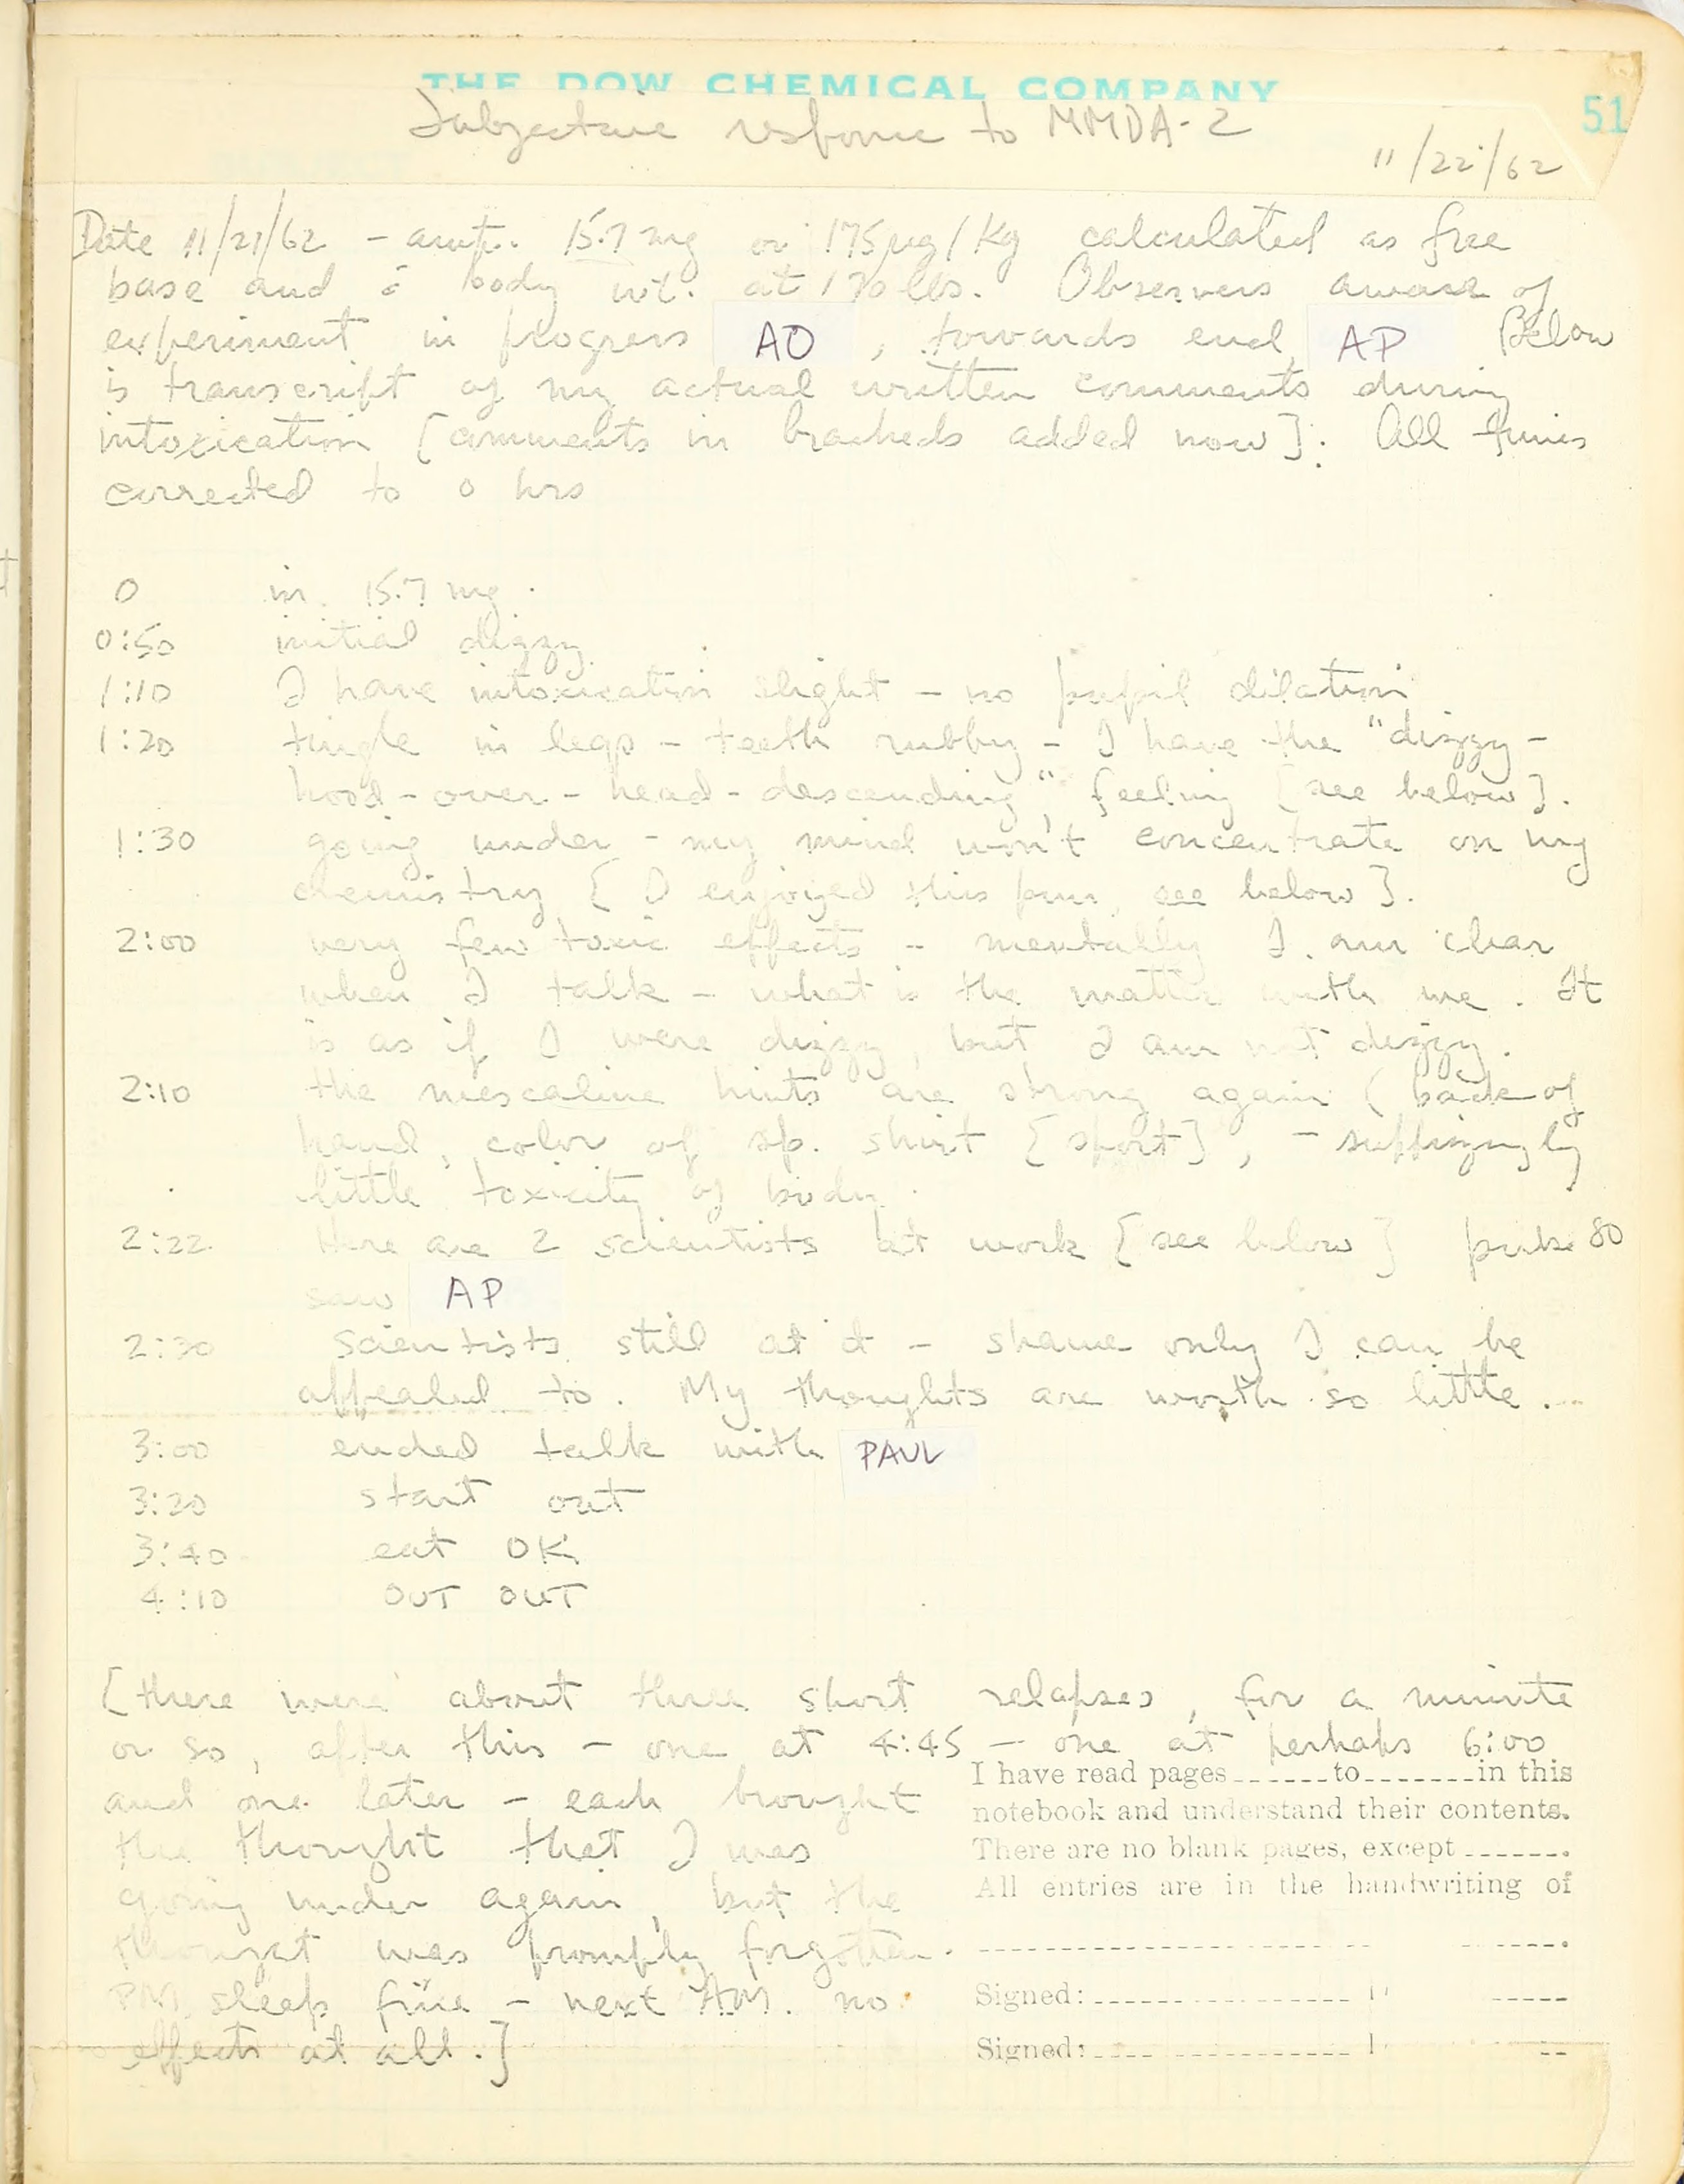 THE DOW CHEMICAL COMPANY
51
Subjective response to MMDA-2
11/22/62
Date 11/21/62 - amt. 15.7 mg or 175µg/Kg calculated as free
base and a body wt. at lbs. Observers aware of
experiment in progress AO, towards end, AP Below
is transcript of my actual written comments during
intoxication [comments in brackets added now]. All times
corrected to 0 hrs
0 in 15.7 mg.
0:50 initial dizzy.
1:10 I have intoxication slight - no pupil dilation
1:20 tingle in legs - teeth rubby - I have the "dizzy-
hood-over-head-descending" feeling [see below].
1:30 going under - my mind won't concentrate on my
chemistry [I enjoyed this pun, see below].
2:00 very few toxic effects - mentally I am clear
when I talk - what is the matter with me. It
is as if I were dizzy, but I am not dizzy.
2:10 the mescaline hints are strong again (back of
hand, color of sp. shirt [sport], -
little toxicity of body.
2:22 there are 2 scientists at work [see below] pulse 80
saw AP
2:30 scientists still at it - shame only I can be
appealed to. My thoughts are worth so little...
3:00 ended talk with PAUL
3:20 start out
3:40 eat OK
4:10 OUT OUT
[there were about three short relapses, for a minute
or so, after this - one at 4:45 - one at perhaps 6:00
and one later - each brought
the thought that I was
going under again, but the
thought was promptly forgotten.
PM. sleep fine - next AM. no
effects at all.]
I have read pages ------to-------in this
notebook and understand their contents.
There are no blank pages, except ------.
All entries are in the handwriting of
Signed:
Signed: